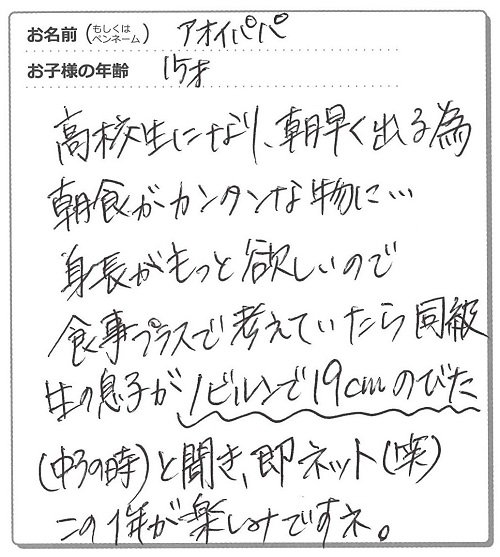 お名前（もしくはペンネーム） アオイパパ
お子様の年齢 15才
高校生になり、朝早く出る為
朝食がカンタンな物に…
身長がもっと欲しいので
食事プラスで考えていたら同級
生の息子がノビルンで19cmのびた
(中3の時)と聞き、即ネット(笑)
この1年が楽しみですネ。